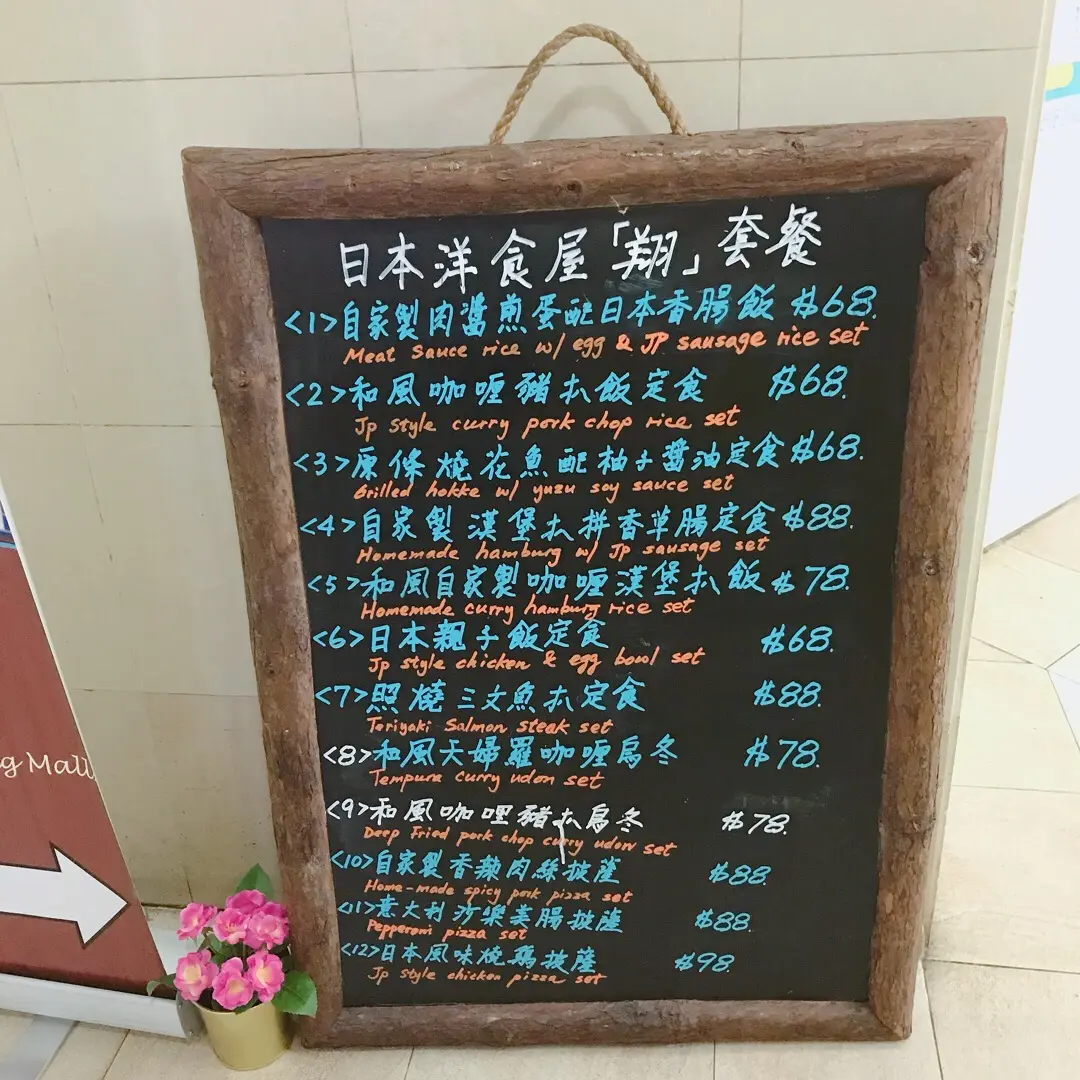 日本洋食屋「翔」套餐
<1>自家製肉醬煎蛋配日本香腸飯 $68.
Meat Sauce rice w/ egg & JP sausage rice set
<2>和風咖喱豬扒飯定食 $68.
Jp style curry pork chop rice set
<3>原條燒花魚配柚子醬油定食 $68.
Grilled hokke w/ yuzu soy sauce set
<4>自家製漢堡扒拼香草腸定食 $88.
Homemade hamburg w/ JP sausage set
<5>和風自家製咖喱漢堡扒飯 $78.
Homemade curry hamburg rice set
<6>日本親子飯定食 $68.
Jp style chicken & egg bowl set
<7>照燒三文魚扒定食 $88.
Teriyaki Salmon steak set
<8>和風天婦羅咖喱烏冬 $78.
Tempura curry udon set
<9>和風咖哩豬扒烏冬 $78.
Deep Fried pork chop curry udon set
<10>自家製香辣肉絲披薩 $88.
Home-made spicy pork pizza set
<11>意大利沙樂美腸披薩 $88.
Pepperoni pizza set
<12>日本風味燒鷄披薩 $98.
Jp style chicken pizza set
g Mall